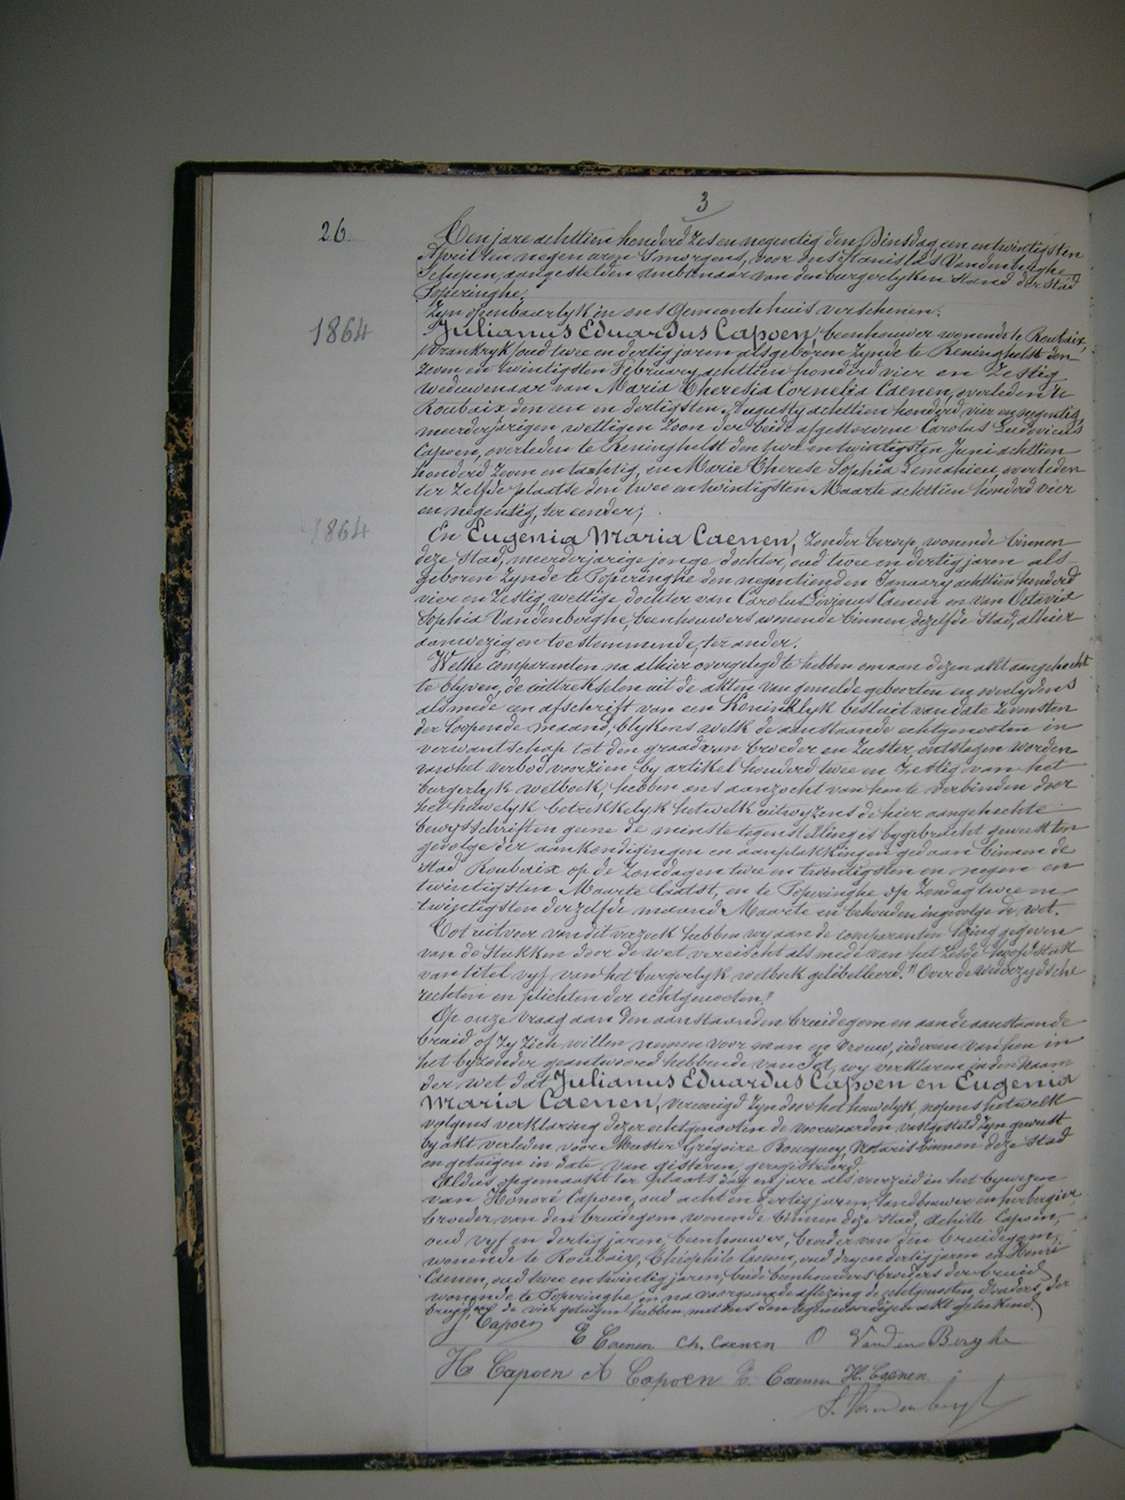 3
26
Ten jare achttien honderd zes en negentig den Dinsdag een en twintigsten
April ten negen uren 's morgens, voor ons Stanislas Vandenberghe
Schepen, aangestelden ambtenaar van den burgerlyken stand der Stad
Poperinghe.
Zyn openbaarlyk in ons Gemeentehuis verschenen:
1864
Julianus Eduardus Capoen, beenhouwer wonende te Roubaix,
Vrankryk, oud twee en dertig jaren als geboren zynde te Reninghelst den
zeven en twintigsten February achttien honderd vier en zestig
weduwenaar van Maria Theresia Cornelia Caenen, overleden te
Roubaix den een en dertigsten Augusty achttien honderd vier en negentig,
meerderjarigen wettigen zoon der beide afgestorvene Carolus Ludovicus
Capoen, overleden te Reninghelst den twee en twintigsten Juni achttien
honderd zeven en tachtig, en Marie Therese Sophia Lemahieu, overleden
ter zelfde plaatse den twee en twintigsten Maarte achttien honderd vier
en negentig, ter eender;
1864
En Eugenia Maria Caenen, zonder beroep, wonende binnen
deze Stad, meerderjarige jonge dochter, oud twee en dertig jaren als
geboren zynde te Poperinghe den negentienden January achttien honderd
vier en zestig, wettige dochter van Carolus Livinus Caenen en van Octavia
Sophia Vandenberghe, beenhouwers wonende binnen dezelfde Stad, alhier
aanwezig en toestemmende, ter ander.
Welke comparanten na alhier overgelegd te hebben om aan dezen akt aangehecht
te blyven, de uittrekselen uit de akten van gemelde geboorten en overlydens
alsmede een afschrift van een Koninklyk besluit van date zevensten
der loopende maand, blykens welk de aanstaande echtgenooten in
verwantschap tot den graad van broeder en zuster, ontslagen worden
van het verbod voorzien by artikel honderd twee en zestig van het
burgerlyk wetboek, hebben ons aanzocht van hen te verbinden door
het huwelyk betrekkelyk hetwelk uitwyzens de hier aangehechte
bewysschriften geene de minste tegenstelling is bygebracht geweest ten
gevolge der aankondigingen en aanplakkingen gedaan binnen de
stad Roubaix op de Zondagen twee en twintigsten en negen en
twintigsten Maarte laatst, en te Poperinghe op Zondag twee en
twintigsten derzelfde maand Maarte en behouden ingevolge de wet.
Tot uitvoer van dit verzoek hebben wy aan de comparanten lezing gegeven
van de Stukken door de wet vereischt alsmede van het zesde hoofdstuk
van titel vyf van het burgerlyk wetboek gelibelleerd: "Over de wederzydsche
rechten en plichten der echtgenooten."
Op onze vraag aan den aanstaanden bruidegom en aan de aanstaande
bruid of zy zich willen nemen voor man en vrouw, iedereen van hen in
het byzonder geantwoord hebbende van Ja, wy verklaren in den naam
der wet dat Julianus Eduardus Capoen en Eugenia
Maria Caenen, vereenigd zyn door het huwelyk, nopens hetwelk
volgens verklaring dezer echtgenooten de voorwaarden vastgesteld zyn geweest
by akt verleden voor Meester Grégoire Bouquey, Notaris binnen deze Stad
en getuigen in date van gisteren, geregistreerd.
Aldus opgemaakt ter plaats dag en jare als voorzeid in het bywezen
van Honoré Capoen, oud acht en dertig jaren, landbouwer en herbergier,
broeder van den bruidegom wonende binnen deze Stad, Achille Capoen,
oud vyf en dertig jaren, beenhouwer, broeder van den bruidegom,
wonende te Roubaix, Théophile Caenen, oud dry en dertig jaren en Henri
Caenen, oud twee en twintig jaren, beide beenhouwers, broeders der bruid,
wonende te Poperinghe, en na voorgaande aflezing de echtgenooten, d'ouders der
bruid, en de vier getuigen hebben met ons den tegenwoordigen akt geteekend.
J Capoen E Caenen Ch. Caenen O VandenBerghe
H Capoen A Capoen T. Caenen H. Caenen
S. Vandenberghe